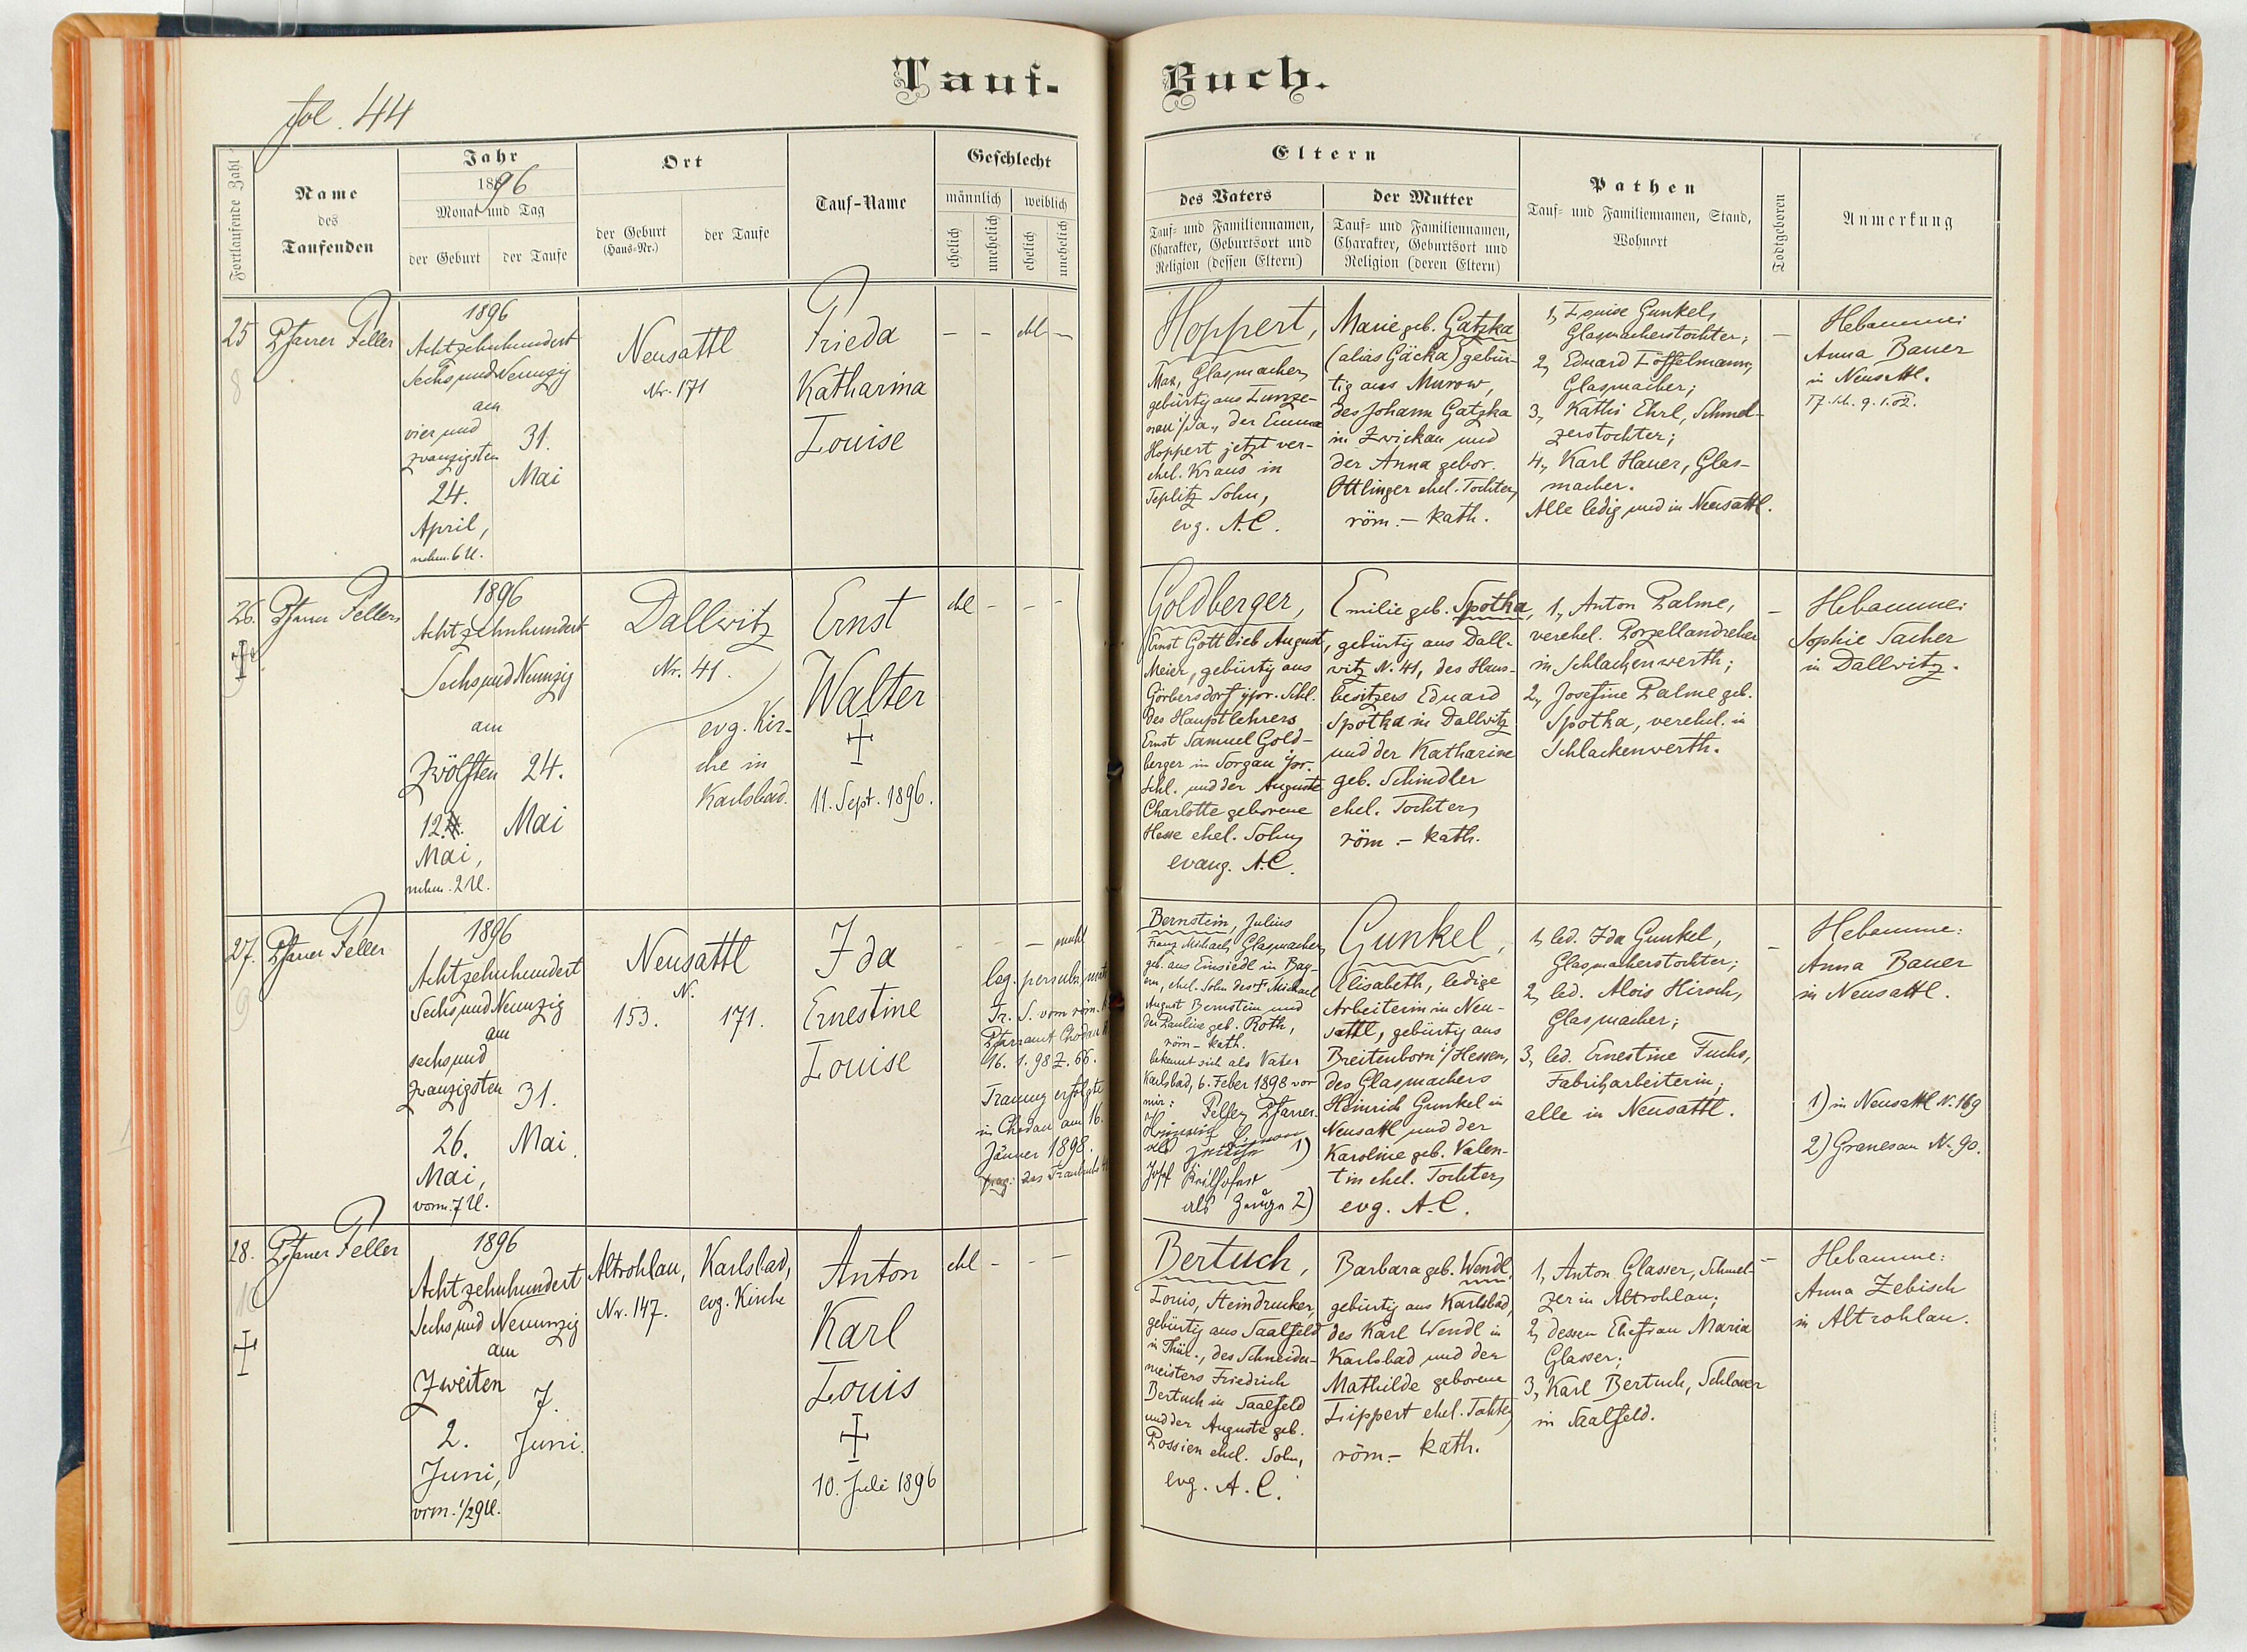 fol. 44
Tauf-
Fortlaufende Zahl
Name
des
Taufenden
Jahr
1896
Monat und Tag
der Geburt
der Taufe
Ort
der Geburt
(Haus-Nr.)
der Taufe
Tauf-Name
Geschlecht
männlich
weiblich
ehelich
unehelich
ehelich
unehelich
25
8
Pfarrer Feller
1896
Achtzehnhundert
Sechs und Neunzig
am
vier und
zwanzigsten
24.
April,
nchm. 6 U.
31.
Mai
Neusattl
Nr. 171
Frieda
Katharina
Louise
– – ehl –
26.
Pfarrer Feller
1896
Achtzehnhundert
Sechs und Neunzig
am
Zwölften
12.
Mai,
nchm. 2 U.
24.
Mai
Dallwitz
Nr. 41.
evg. Kir-
che in
Karlsbad.
Ernst
Walter
11. Sept. 1896.
ehl – – –
27.
9
Pfarrer Feller
1896
Achtzehnhundert
Sechs und Neunzig
am
sechs und
zwanzigsten
26.
Mai,
vorm. 7 U.
31.
Mai
Neusattl
N.
153.
171.
Ida
Ernestine
Louise
– – – unehl
leg. per subs. matr.
Tr. S. vom röm. k.
Pfarramt Chodau
16. 1. 98 Z. 66.
Trauung erfolgte
in Chodau am 16.
Jänner 1898.
28.
10
Pfarrer Feller
1896
Achtzehnhundert
Sechs und Neunzig
am
Zweiten
2.
Juni,
vrm. ½9 U.
7.
Juni.
Altrohlau,
Nr. 147.
Karlsbad,
evg. Kirche
Anton
Karl
Louis
10. Juli 1896
ehl – – –
Buch.
Eltern
des Vaters
Tauf- und Familiennamen,
Charakter, Geburtsort und
Religion (dessen Eltern)
der Mutter
Tauf- und Familiennamen,
Charakter, Geburtsort und
Religion (deren Eltern)
Pathen
Tauf- und Familiennamen, Stand,
Wohnort
Todtgeboren
Anmerkung
Hoppert,
Max, Glasmacher,
gebürtig aus Lunze-
nau i/Sa., der Emma
Hoppert jetzt ver-
ehel. Kraus in
Teplitz Sohn,
evg. A.C.
Marie geb. Gatzka
(alias Gäcka) gebür-
tig aus Murow,
des Johann Gatzka
in Zwickau und
der Anna gebor.
Ottlinger ehel. Tochter,
röm. – kath.
1, Louise Gunkel,
Glasmacherstochter;
2, Eduard Löffelmann,
Glasmacher;
3, Kathi Ehrl, Schmel-
zerstochter;
4, Karl Hauer, Glas-
macher.
Alle ledig und in Neusattl.
–
Hebamme:
Anna Bauer
in Neusattl.
Tf. Sch. 9. 1. 02.
Goldberger,
Ernst Gottlieb August
Meier, gebürtig aus
Görbersdorf pr. Schl.
des Hauptlehrers
Ernst Samuel Gold-
berger in Sorgau pr.
Schl. und der Auguste
Charlotte geborene
Hesse ehel. Sohn,
evang. A.C.
Emilie geb. Spotka,
gebürtig aus Dall-
witz N. 41, des Haus-
besitzers Eduard
Spotka in Dallwitz
und der Katharine
geb. Schindler
ehel. Tochter,
röm. – kath.
1, Anton Palme,
verehel. Porzellandreher
in Schlackenwerth;
2, Josefine Palme geb.
Spotka, verehel. in
Schlackenwerth.
–
Hebamme:
Sophie Sacher
in Dallwitz.
Bernstein, Julius
Franz Michael, Glasmacher,
geb. aus Einsiedl in Bay-
ern, ehel. Sohn des F. Michael
August Bernstein und
der Pauline geb. Roth,
röm – kath.
bekennt sich als Vater
Karlsbad, 6. Feber 1898 vor
mir: Feller, Pfarrer.
als 1)
Josef
als Zeuge 2)
Gunkel,
Elisabeth, ledige
Arbeiterin in Neu-
sattl, gebürtig aus
Breitenborn i/Hessen,
des Glasmachers
Heinrich Gunkel in
Neusattl und der
Karoline geb. Valen-
tin ehel. Tochter,
evg. A.C.
1, led. Ida Gunkel,
Glasmacherstochter;
2, led. Alois Hirsch,
Glasmacher;
3, led. Ernestine Fuchs,
Fabriksarbeiterin;
alle in Neusattl.
–
Hebamme:
Anna Bauer
in Neusattl.
1) in Neusattl N. 169
2) Granesau N. 90.
Bertuch,
Louis, Steindrucker,
gebürtig aus Saalfeld
in Thür., des Schneider-
meisters Friedrich
Bertuch in Saalfeld
und der Auguste geb.
Possien ehel. Sohn,
evg. A.C.
Barbara geb. Wendl,
gebürtig aus Karlsbad,
des Karl Wendl in
Karlsbad und der
Mathilde geborene
Lippert ehel. Tochter,
röm. – kath.
1, Anton Glasser, Schmel-
zer in Altrohlau;
2, dessen Ehefrau Maria
Glasser;
3, Karl Bertuch, Schlosser
in Saalfeld.
–
Hebamme:
Anna Zebisch
in Altrohlau.